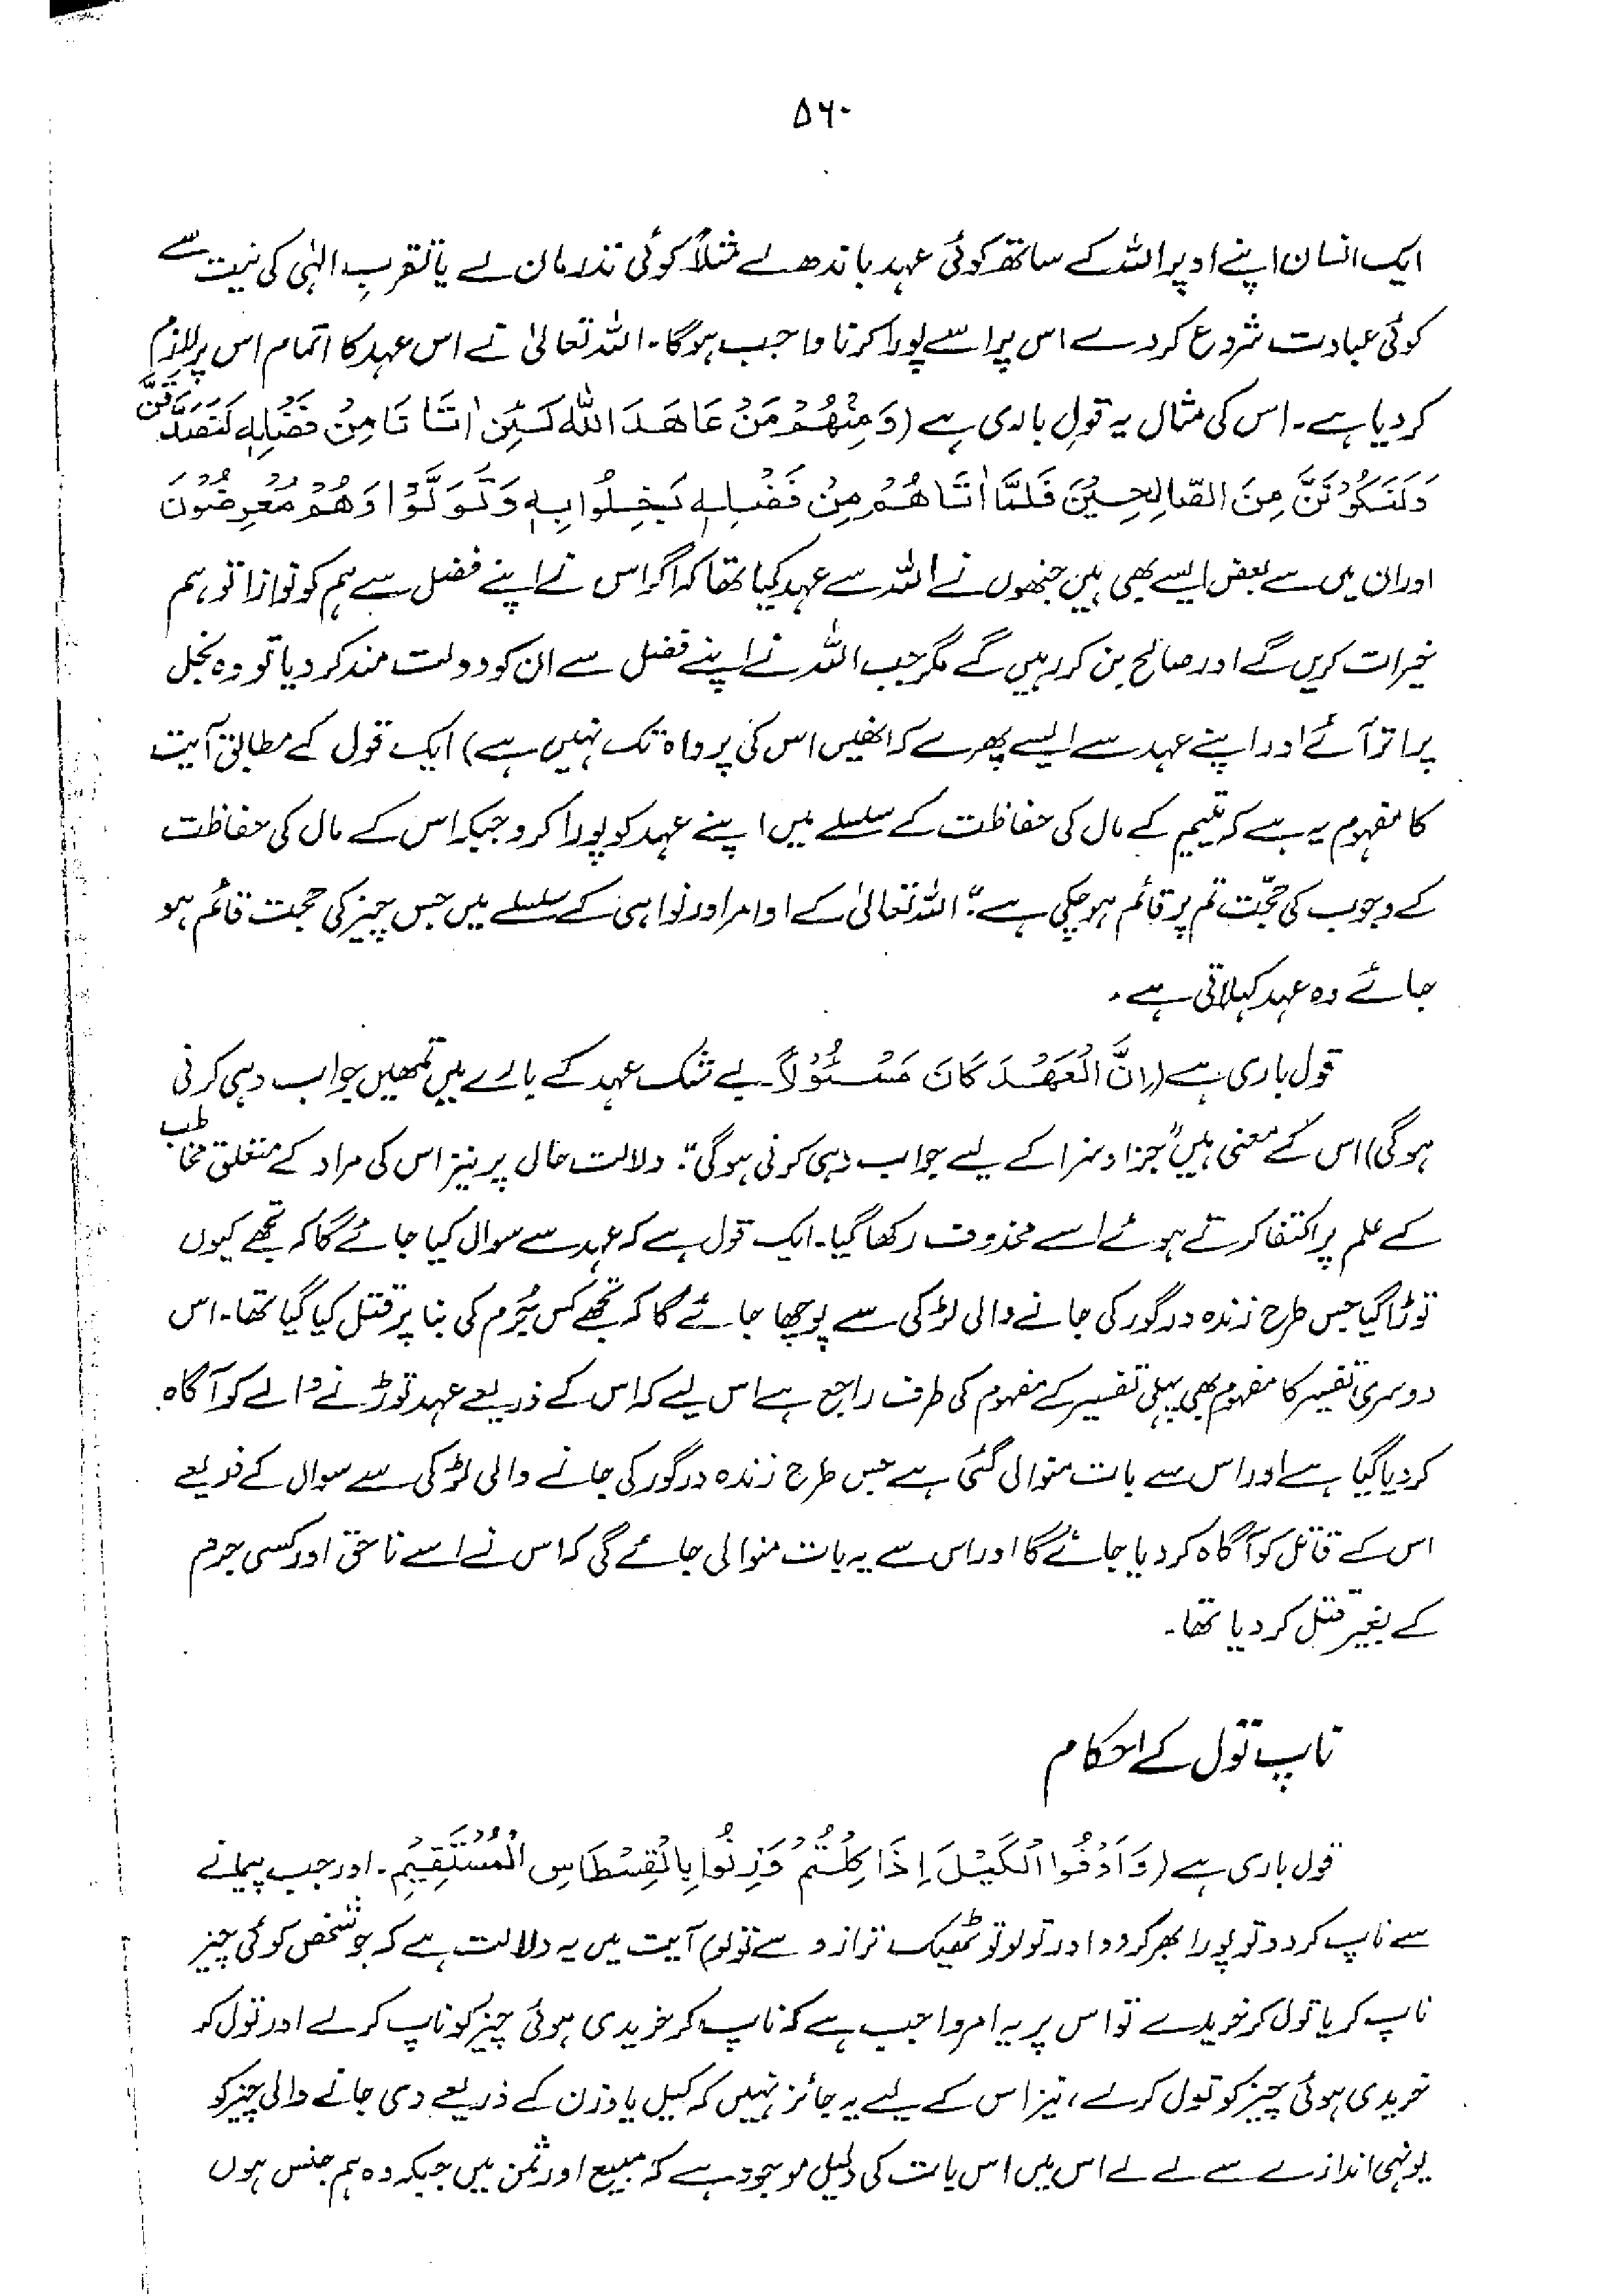 ۵۶۰
ایک انسان اپنے اوپر اللہ کے ساتھ کوئی عہد باندھ لے مثلاً کوئی نذر مان لے یا تقربِ الٰہی کی نیت سے
کوئی عبادت شروع کردے اس پر اسے پورا کرنا واجب ہوگا۔ اللہ تعالیٰ نے اس عہد کا اتمام اس پر لازم
کردیا ہے۔ اس کی مثال یہ قول باری ہے (وَمِنْهُمْ مَنْ عَاهَدَ اللهَ لَئِنْ اٰتَانَا مِنْ فَضْلِهٖ لَنَصَّدَّقَنَّ
وَلَنَكُوْنَنَّ مِنَ الصَّالِحِيْنَ فَلَمَّا اٰتَاهُمْ مِنْ فَضْلِهٖ بَخِلُوْا بِهٖ وَتَوَلَّوْا وَهُمْ مُعْرِضُوْنَ
اور ان میں سے بعض ایسے بھی ہیں جنھوں نے اللہ سے عہد کیا تھا کہ اگر اس نے اپنے فضل سے ہم کو نوازا تو ہم
خیرات کریں گے اور صالح بن کر رہیں گے مگر جب اللہ نے اپنے فضل سے ان کو دولت مند کردیا تو وہ بخل
پر اتر آئے اور اپنے عہد سے ایسے پھرے کہ انھیں اس کی پرواہ تک نہیں ہے) ایک قول کے مطابق آیت
کا مفہوم یہ ہے کہ یتیم کے مال کی حفاظت کے سلسلے میں اپنے عہد کو پورا کرو جبکہ اس کے مال کی حفاظت
کے وجوب کی حجّت تم پر قائم ہوچکی ہے"۔ اللہ تعالیٰ کے اوامر اور نواہی کے سلسلے میں جس چیز کی حجت قائم ہو
جائے وہ عہد کہلاتی ہے۔
قول باری ہے (اِنَّ الْعَهْدَ كَانَ مَسْئُوْلًا۔ بے شک عہد کے بارے میں تمھیں جواب دہی کرنی
ہوگی) اس کے معنی ہیں "جزا و سزا کے لیے جواب دہی کرنی ہوگی"۔ دلالت حال پر نیز اس کی مراد کے متعلق مخاطب
کے علم پر اکتفا کرتے ہوئے اسے محذوف رکھا گیا۔ ایک قول ہے کہ عہد سے سوال کیا جائے گا کہ تجھے کیوں
توڑا گیا جس طرح زندہ درگور کی جانے والی لڑکی سے پوچھا جائے گا کہ تجھے کس جُرم کی بنا پر قتل کیا گیا تھا۔ اس
دوسری تفسیر کا مفہوم بھی پہلی تفسیر کے مفہوم کی طرف راجع ہے اس لیے کہ اس کے ذریعے عہد توڑنے والے کو آگاہ
کردیا گیا ہے اور اس سے بات منوالی گئی ہے جس طرح زندہ درگور کی جانے والی لڑکی سے سوال کے ذریعے
اس کے قاتل کو آگاہ کردیا جائے گا اور اس سے یہ بات منوالی جائے گی کہ اس نے اسے ناحق اور کسی جرم
کے بغیر قتل کردیا تھا۔
ناپ تول کے احکام
قول باری ہے (وَاَوْفُوا الْكَيْلَ اِذَا كِلْتُمْ وَزِنُوْا بِالْقِسْطَاسِ الْمُسْتَقِيْمِ۔ اور جب پیمانے
سے ناپ کر دو تو پورا بھر کر دو اور تولو تو ٹھیک ترازو سے تولو) آیت میں یہ دلالت ہے کہ جو شخص کوئی چیز
ناپ کر یا تول کر خریدے تو اس پر یہ امر واجب ہے کہ ناپ کر خریدی ہوئی چیز کو ناپ کر لے اور تول کر
خریدی ہوئی چیز کو تول کر لے، نیز اس کے لیے یہ جائز نہیں کہ کیل یا وزن کے ذریعے دی جانے والی چیز کو
یونہی اندازے سے لے لے اس میں اس بات کی دلیل موجود ہے کہ مبیع اور ثمن میں جبکہ وہ ہم جنس ہوں